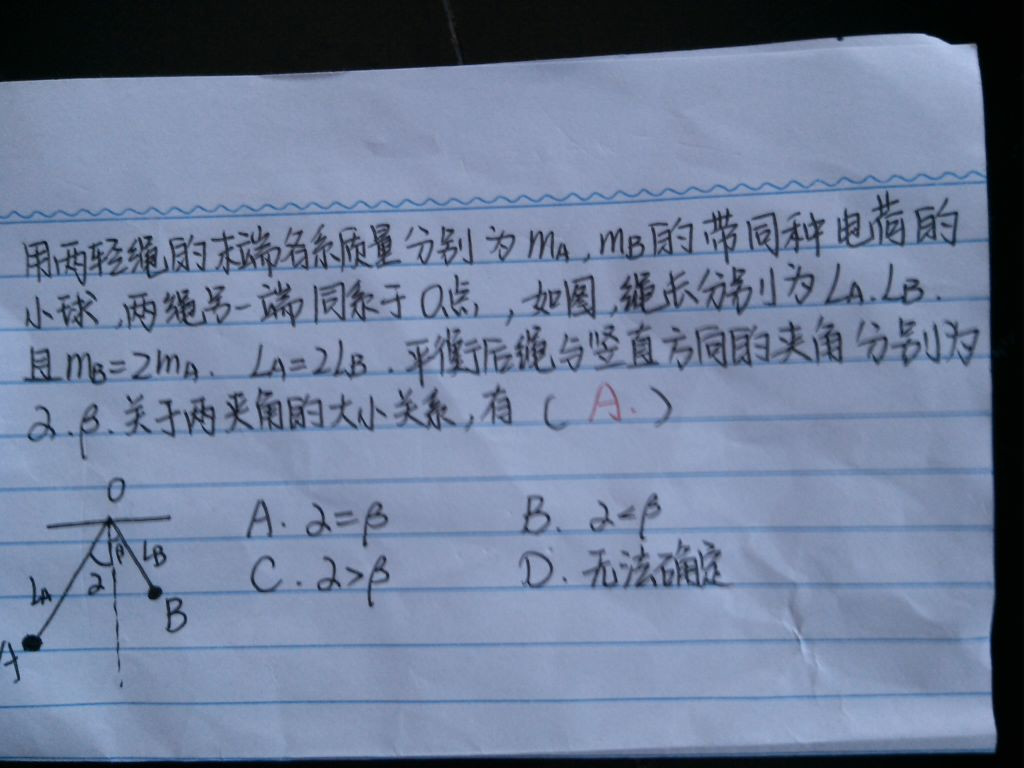 用两轻绳的末端各系质量分别为mA,mB的带同种电荷的
小球,两绳另一端同系于O点,如图,绳长分别为LA.LB.
且mB=2mA. LA=2LB.平衡后绳与竖直方向的夹角分别为
α.β.关于两夹角的大小关系,有(A.)
O
A. α=β B. α<β
C. α>β D. 无法确定
β LB
LA α
B
A